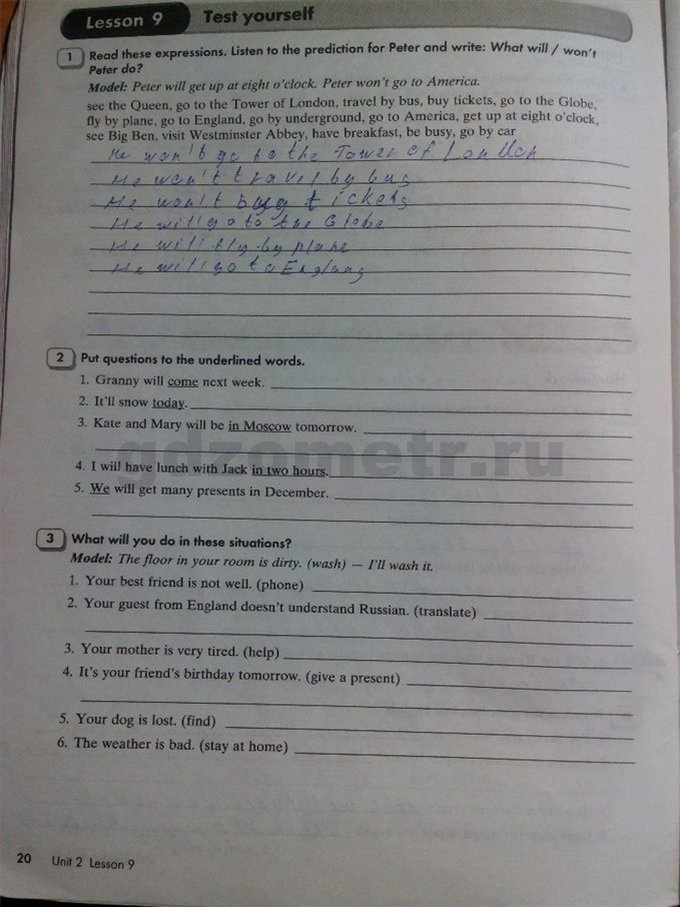 Lesson 9 Test yourself
1 Read these expressions. Listen to the prediction for Peter and write: What will / won't
Peter do?
Model: Peter will get up at eight o'clock. Peter won't go to America.
see the Queen, go to the Tower of London, travel by bus, buy tickets, go to the Globe,
fly by plane, go to England, go by underground, go to America, get up at eight o'clock,
see Big Ben, visit Westminster Abbey, have breakfast, be busy, go by car
He won't go to the Tower of London
He won't travel by bus
He won't buy tickets
He will go to the Globe
He will fly by plane
He will go to England
2 Put questions to the underlined words.
1. Granny will come next week.
2. It'll snow today.
3. Kate and Mary will be in Moscow tomorrow.
gdzometr.ru
4. I will have lunch with Jack in two hours.
5. We will get many presents in December.
3 What will you do in these situations?
Model: The floor in your room is dirty. (wash) — I'll wash it.
1. Your best friend is not well. (phone)
2. Your guest from England doesn't understand Russian. (translate)
3. Your mother is very tired. (help)
4. It's your friend's birthday tomorrow. (give a present)
5. Your dog is lost. (find)
6. The weather is bad. (stay at home)
20 Unit 2 Lesson 9